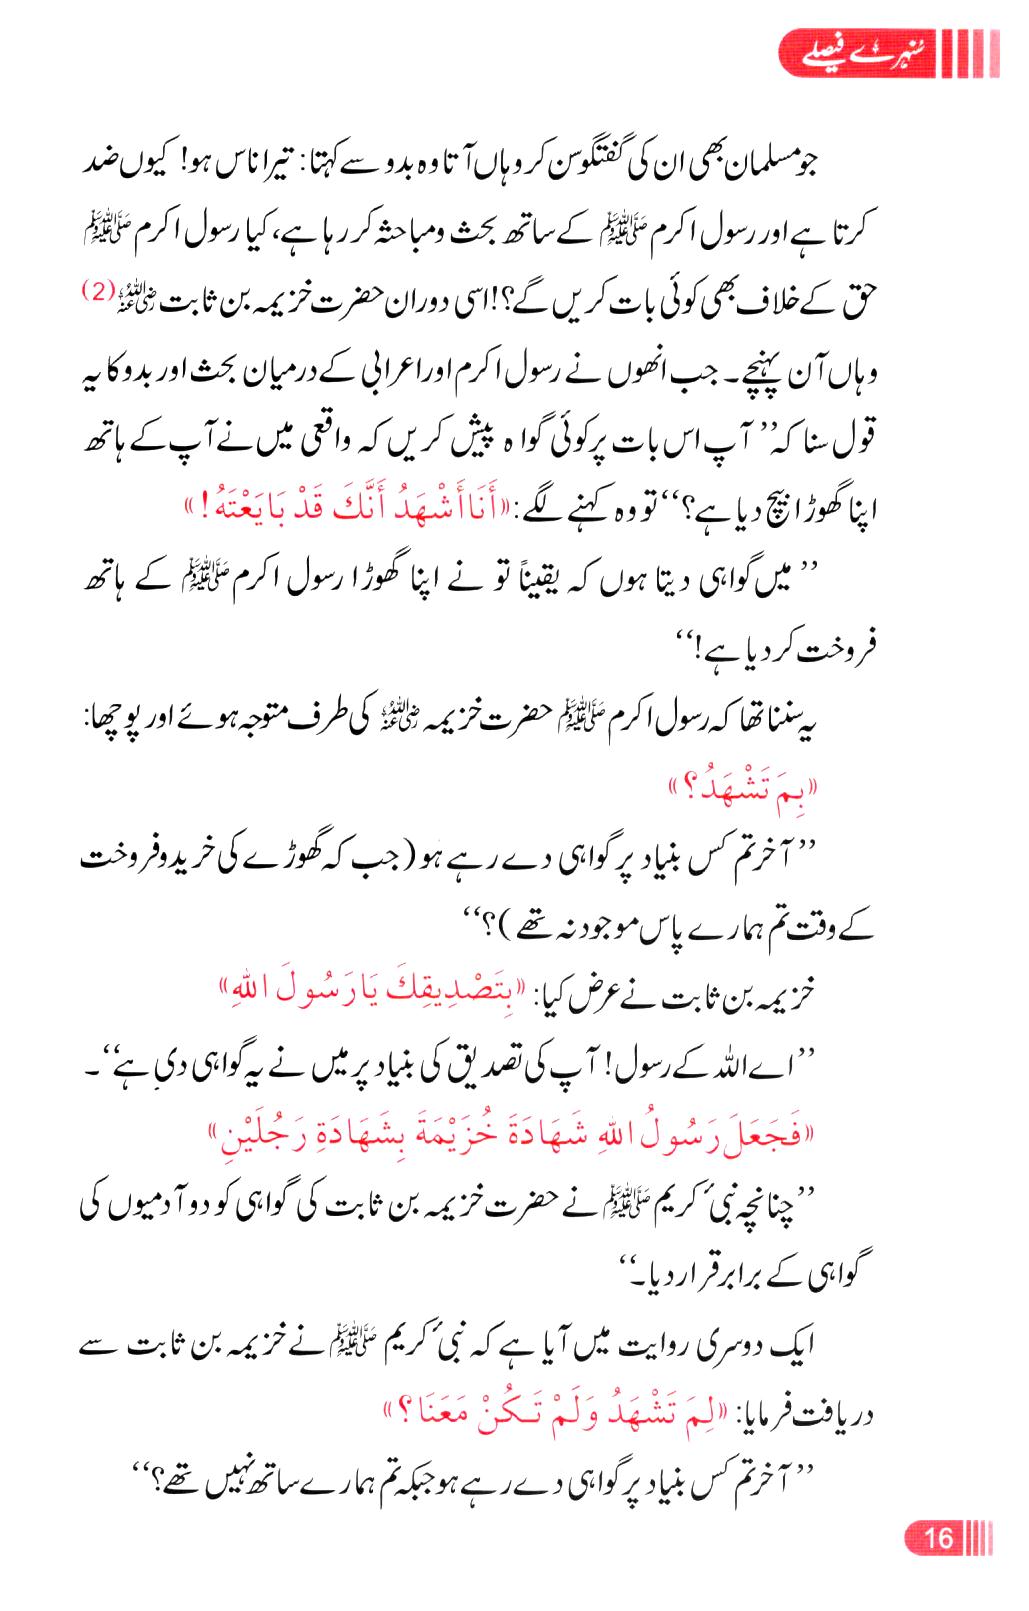 سُنہرے فیصلے
جو مسلمان بھی ان کی گفتگو سن کر وہاں آتا وہ بدو سے کہتا: تیرا ناس ہو! کیوں ضد
کرتا ہے اور رسول اکرم ﷺ کے ساتھ بحث و مباحثہ کر رہا ہے، کیا رسول اکرم ﷺ
حق کے خلاف بھی کوئی بات کریں گے؟! اسی دوران حضرت خزیمہ بن ثابت رضی اللہ عنہ (2)
وہاں آن پہنچے۔ جب انھوں نے رسول اکرم اور اعرابی کے درمیان بحث اور بدو کا یہ
قول سنا کہ ’’آپ اس بات پر کوئی گواہ پیش کریں کہ واقعی میں نے آپ کے ہاتھ
اپنا گھوڑا بیچ دیا ہے؟‘‘ تو وہ کہنے لگے: «أَنَا أَشْهَدُ أَنَّكَ قَدْ بَايَعْتَهُ!»
’’میں گواہی دیتا ہوں کہ یقیناً تو نے اپنا گھوڑا رسول اکرم ﷺ کے ہاتھ
فروخت کر دیا ہے!‘‘
یہ سننا تھا کہ رسول اکرم ﷺ حضرت خزیمہ رضی اللہ عنہ کی طرف متوجہ ہوئے اور پوچھا:
«بِمَ تَشْهَدُ؟»
’’آخر تم کس بنیاد پر گواہی دے رہے ہو (جب کہ گھوڑے کی خرید و فروخت
کے وقت تم ہمارے پاس موجود نہ تھے)؟‘‘
خزیمہ بن ثابت نے عرض کیا: «بِتَصْدِيقِكَ يَا رَسُولَ اللهِ»
’’اے اللہ کے رسول! آپ کی تصدیق کی بنیاد پر میں نے یہ گواہی دی ہے‘‘۔
«فَجَعَلَ رَسُولُ اللهِ شَهَادَةَ خُزَيْمَةَ بِشَهَادَةِ رَجُلَيْنِ»
’’چنانچہ نبیٔ کریم ﷺ نے حضرت خزیمہ بن ثابت کی گواہی کو دو آدمیوں کی
گواہی کے برابر قرار دیا۔‘‘
ایک دوسری روایت میں آیا ہے کہ نبیٔ کریم ﷺ نے خزیمہ بن ثابت سے
دریافت فرمایا: «لِمَ تَشْهَدُ وَلَمْ تَكُنْ مَعَنَا؟»
’’آخر تم کس بنیاد پر گواہی دے رہے ہو جبکہ تم ہمارے ساتھ نہیں تھے؟‘‘
16